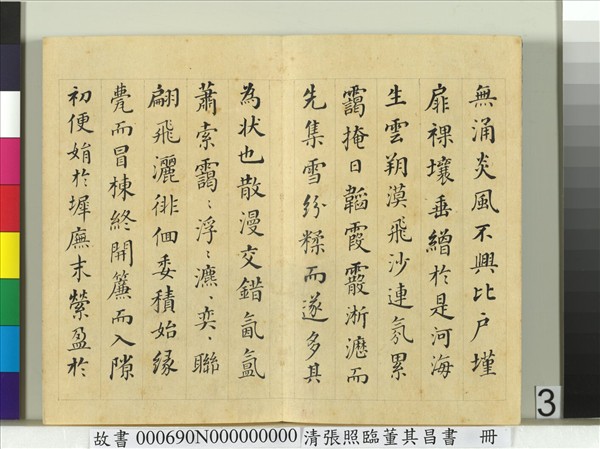 無涌炎風不興比戶墐
扉裸壤垂繒扵是河海
生雲朔漠飛沙連氛累
靄掩日韜霞霰淅瀝而
先集雪紛糅而遂多其
為状也散漫交錯氤氳
蕭索靄〻浮〻瀌〻奕〻聯
翩飛灑徘佪委積始緣
甍而冒棟終開簾而入隙
初便娟扵墀廡末縈盈扵
3
故書 000690N000000000 清張照臨董其昌書 冊